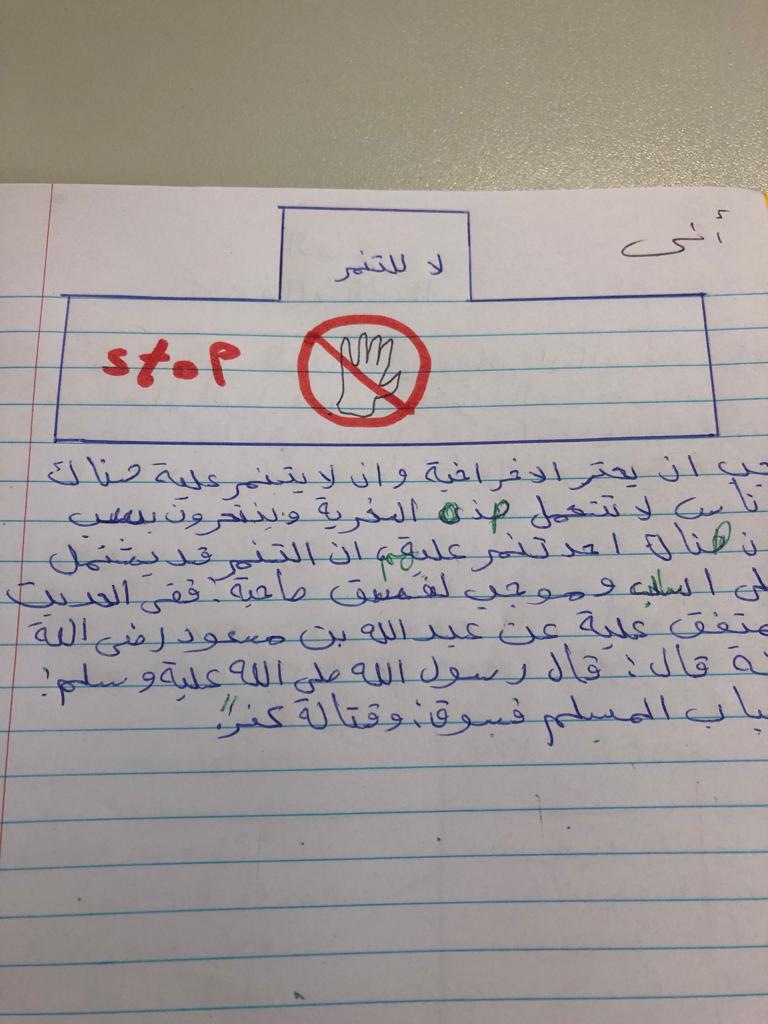 أنى
لا للتنمر
stop
ان يحتر الافراخية وان لا يتنمر علية هناك
لا تتحمل هذه السخرية وينتحرون بسبب
هناك احد تنمر عليهم ان التنمر قد يشتمل
السلب وموجب لفسق صاحبة: ففي الحديث
متفق علية عن عبد الله بن مسعود رضى اللة
قال: قال رسول الله صلى الله علية وسلم:
المسلم فسوق: وقتالة كفر"